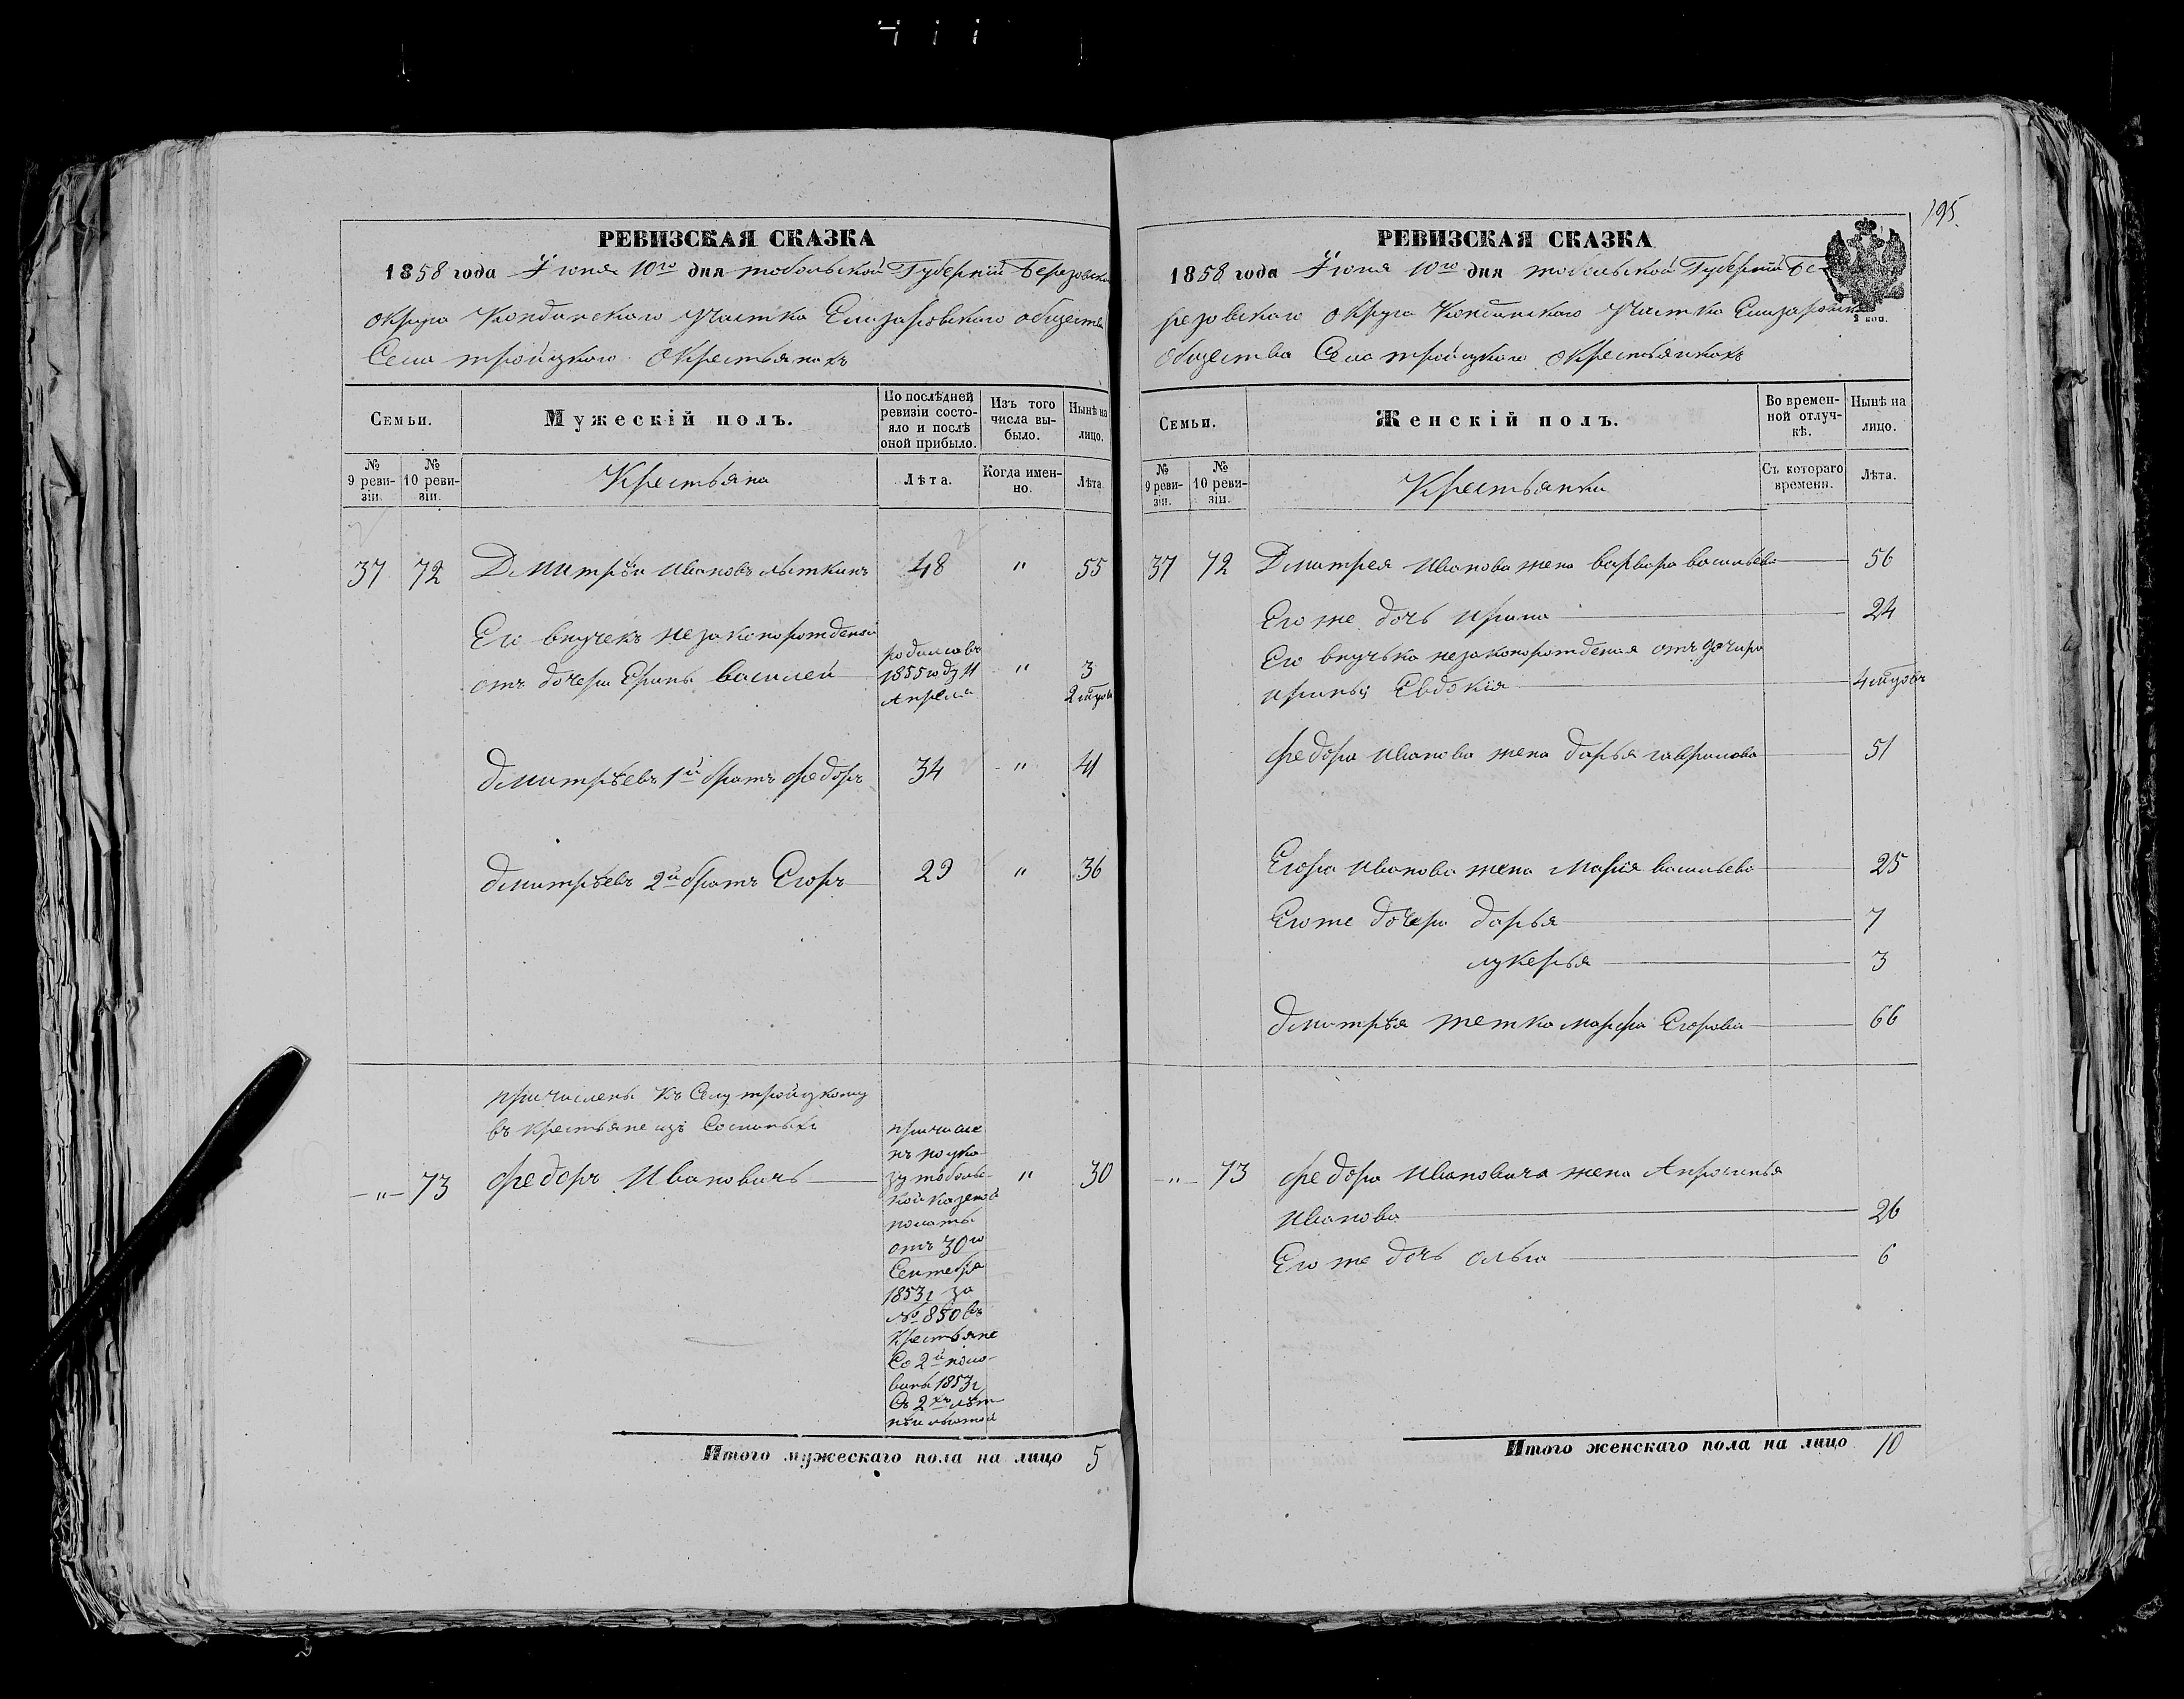 195.
РЕВИЗСКАЯ СКАЗКА
1858 года Іюня 10го дня тобольской Губерніи Березовскаго
округа Кондинскаго участка Елизаровскаго общества
Села тройцкаго О крестьянахъ
Семьи.
Мужескій полъ.
По послѣдней ревизіи состо-
яло и послѣ
оной прибыло.
Изъ того
числа вы-
было.
Нынѣ на
лицо.
№
9 реви-
зіи.
№
10 реви-
зіи.
Крестьяна
Лѣта.
Когда имен-
но.
Лѣта.
37 72 Дмитрѣй Ивановъ лыткинъ 48 " 55
Его внучекъ незаконорожденой
отъ дочери Ерины василей родился въ 1855 году 11 Апреля " 3
Дмитрѣевъ 1й братъ федоръ 34 " 41
Дмитрѣевъ 2й братъ Егоръ 29 " 36
причислены къ Селу тройцкому
въ крестьяне изъ
-"- 73 федоръ Ивановичь " 30
причисле
нъ по ука-
зу тоболь-
ской казеной
полаты
отъ 30го
Сентебря
1853г за
№ 850 въ
Крестьяне
Со 2й поло-
вины 1853г
Съ 2хъ лѣт-
нѣй льготой
Итого мужескаго пола на лицо 5
РЕВИЗСКАЯ СКАЗКА
1858 года Іюня 10го дня тобольской Губерніи Бе-
резовскаго округа Кондинскаго участка Елизаровскаго
общества Села тройцкаго О крестьянкахъ
2 коп.
Семьи.
Женскій полъ.
Во времен-
ной отлуч-
кѣ.
Нынѣ на
лицо.
№
9 реви-
зіи.
№
10 реви-
зіи.
Крестьянки
Съ котораго
времени.
Лѣта.
37 72 Дмитрея Иванова жена варвара васильева 56
Его же дочь ирина 24
Его внучька незаконорожденая отъ дочири
ирины Евдокія
федора Иванова жена дарья гаврилова 51
Егора Иванова жена Марія васильева 25
Его же дочери дарья 7
лукерья 3
Дмитрѣя тетка марфа Егорова 66
-"- 73 федора Ивановича жена
Иванова 26
Его же дочь ольга 6
Итого женскаго пола на лицо 10